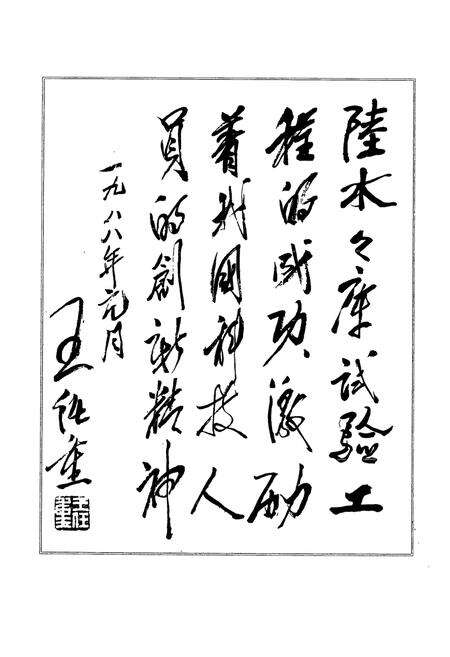 陸水々庫試驗工
程的成功，激励
着我國科技人
員的創新精神
一九八八年元月
王任重
王任重